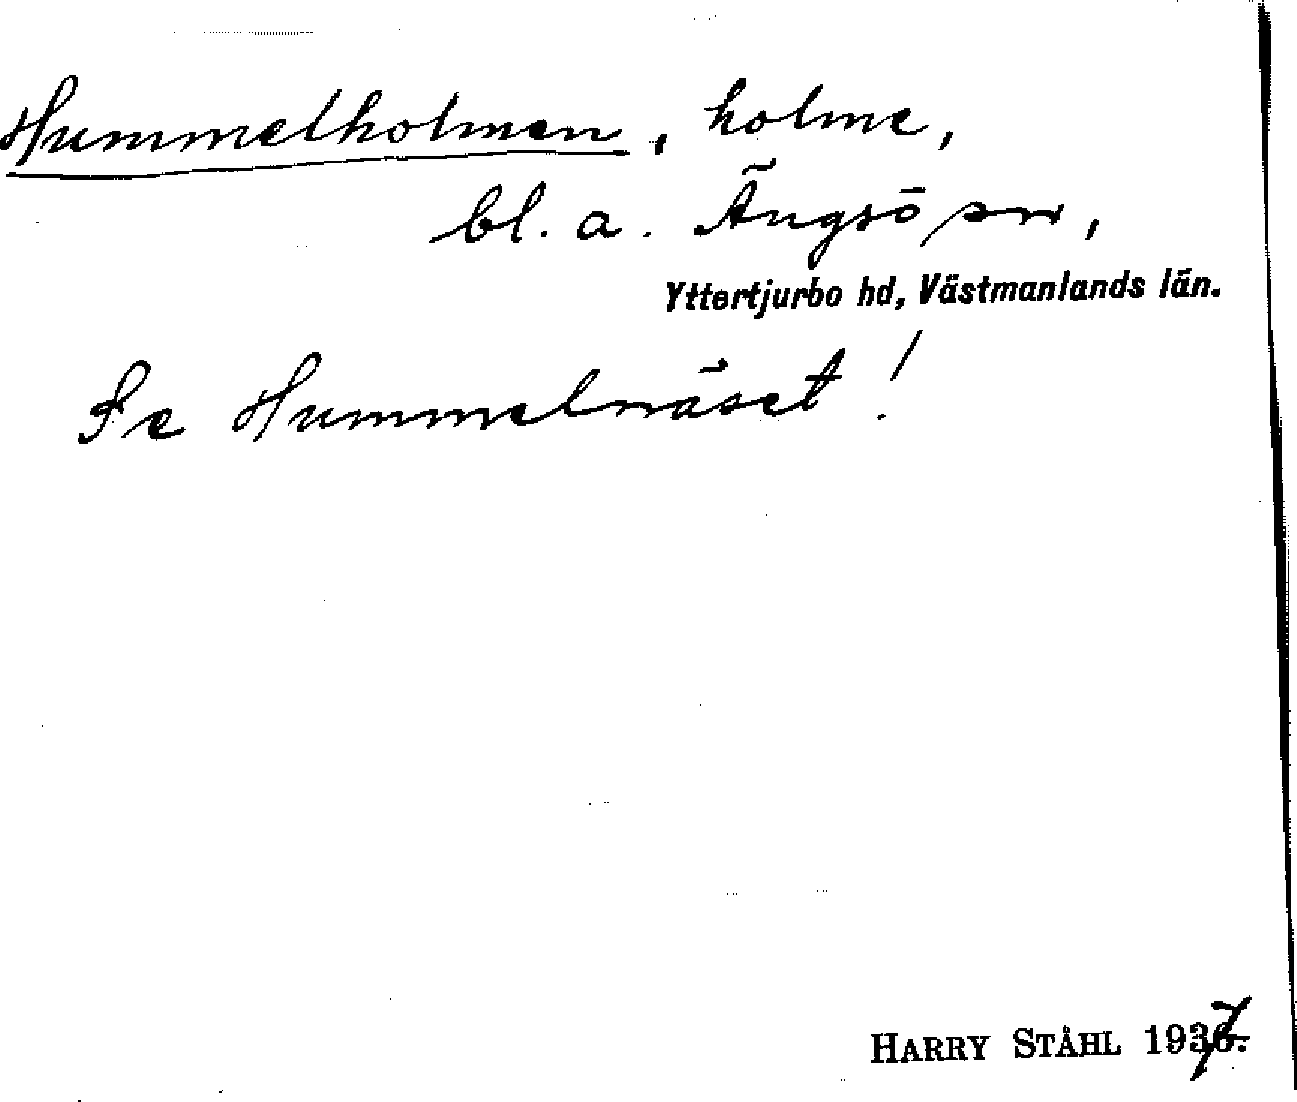 Hummelholmen, holme,
bl. a. Ängsö sn,
Yttertjurbo hd, Västmanlands län.
Se Hummelnäset!
HARRY STÅHL 1937.